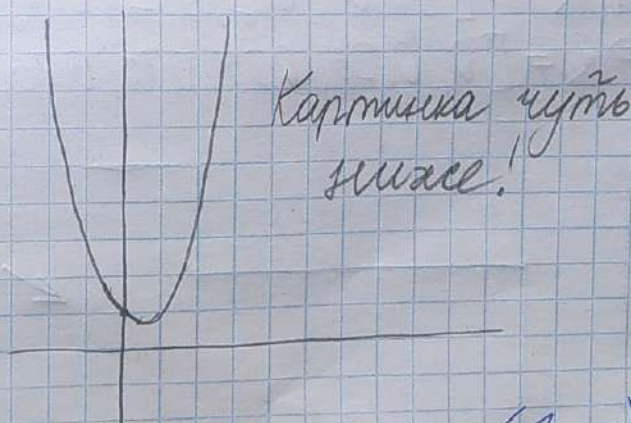 Картинка чуть
ниже!